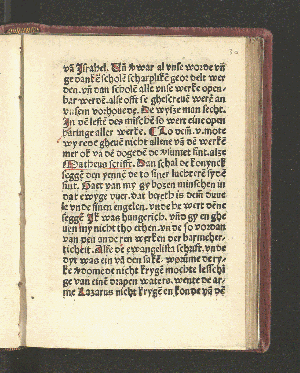 vā Israhel. Vñ vwar al vnse worde vñ
ge dankē scholē scharpliken geor delt wer
den. vñ dan scholē alle vnse werke open-
bar werdē. alse offt se ghescreuē werē an
vnsem vorhouede. De wyße man secht.
In dē lestē des mischē so wert eine open
baringe aller werke. Lo dem. v. mote
wy rede gheuē nicht allene vā dē werkē
mer ok vā dē dogedē de vsumet sint. alze
Matheus scrifft. Dan schal de konynck
seggē den yenne de to siner luchterē syde
sint. Gaet van my gy bozen minschen in
dat ewyge vuer. dat bereth is dem duuele
vn de siner engelen. vnde he wert dēne
seggē Ik was hungerich. vnd gy en ghe
uen my nicht tho ethen. vn de so vordan
van den anderen werken der barmeher-
ticheit. Alse de ewangelista scrift. vn de
dyt was ein vā den sakē. worūme de ry-
ke vdomede nicht krygē mochte lesschi
ge van einē drapen waters. wente de ar-
me Lazarus nicht krygē en konde vā dē